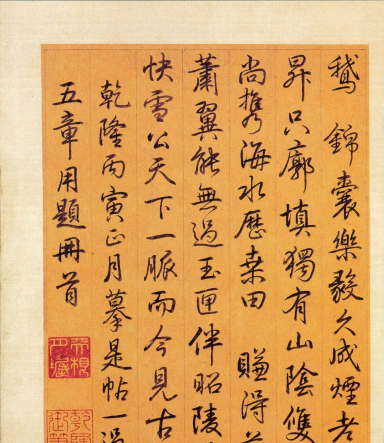 鵝 錦囊樂毅久成煙
昇只廓填獨有山陰雙
尚携海水歷桑田 賺得
蕭翼能無過玉匣伴昭陵
快雪公天下一脈而今見古
乾隆丙寅正月摹是帖一過
五章用題冊首